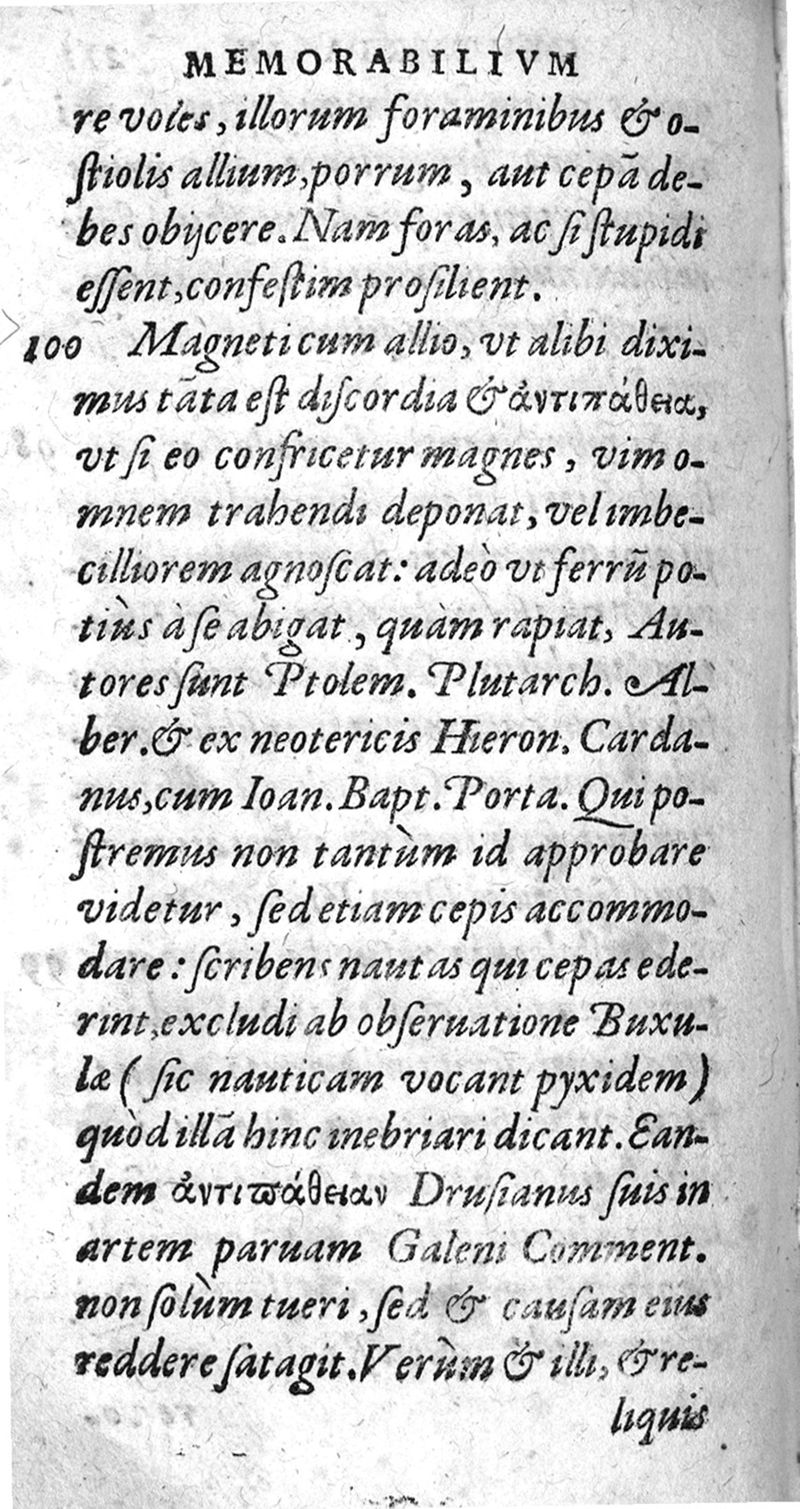 MEMORABILIVM
re voles, illorum foraminibus & o-
ſtiolis allium, porrum, aut cepã de-
bes obijcere. Nam foras, ac ſi ſtupidi
eſſent, confeſtim proſilient.
100 Magneti cum allio, vt alibi dixi-
mus tãta eſt diſcordia & ἀντιπάθεια,
vt ſi eo confricetur magnes, vim o-
mnem trahendi deponat, vel imbe-
cilliorem agnoſcat: adeò vt ferrũ po-
tiùs à ſe abigat, quàm rapiat, Au-
tores ſunt Ptolem. Plutarch. Al-
ber. & ex neotericis Hieron. Carda-
nus, cum Ioan. Bapt. Porta. Qui po-
ſtremus non tantùm id approbare
videtur, ſed etiam cepis accommo-
dare: ſcribens nautas qui cepas ede-
rint, excludi ab obſeruatione Buxu-
læ (ſic nauticam vocant pyxidem)
quòd illã hinc inebriari dicant. Ean-
dem ἀντιπάθειαν Druſianus ſuis in
artem paruam Galeni Comment.
non ſolùm tueri, ſed & cauſam eius
reddere ſatagit. Verùm & illi, & re-
liquis